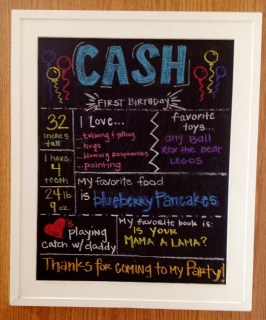 CASH
FIRST BIRTHDAY
32
inches
tall
I have
4
teeth
24 lb
9 oz.
I Love...
...talking & yelling
...hugs
...blowing raspberries
...pointing
favorite
toys...
any Ball
Rex the Bear
LEGOS
My favorite food
is blueberry Pancakes
playing
catch w/daddy
My favorite book is:
IS YOUR
MAMA A LAMA?
Thanks for coming to my Party!